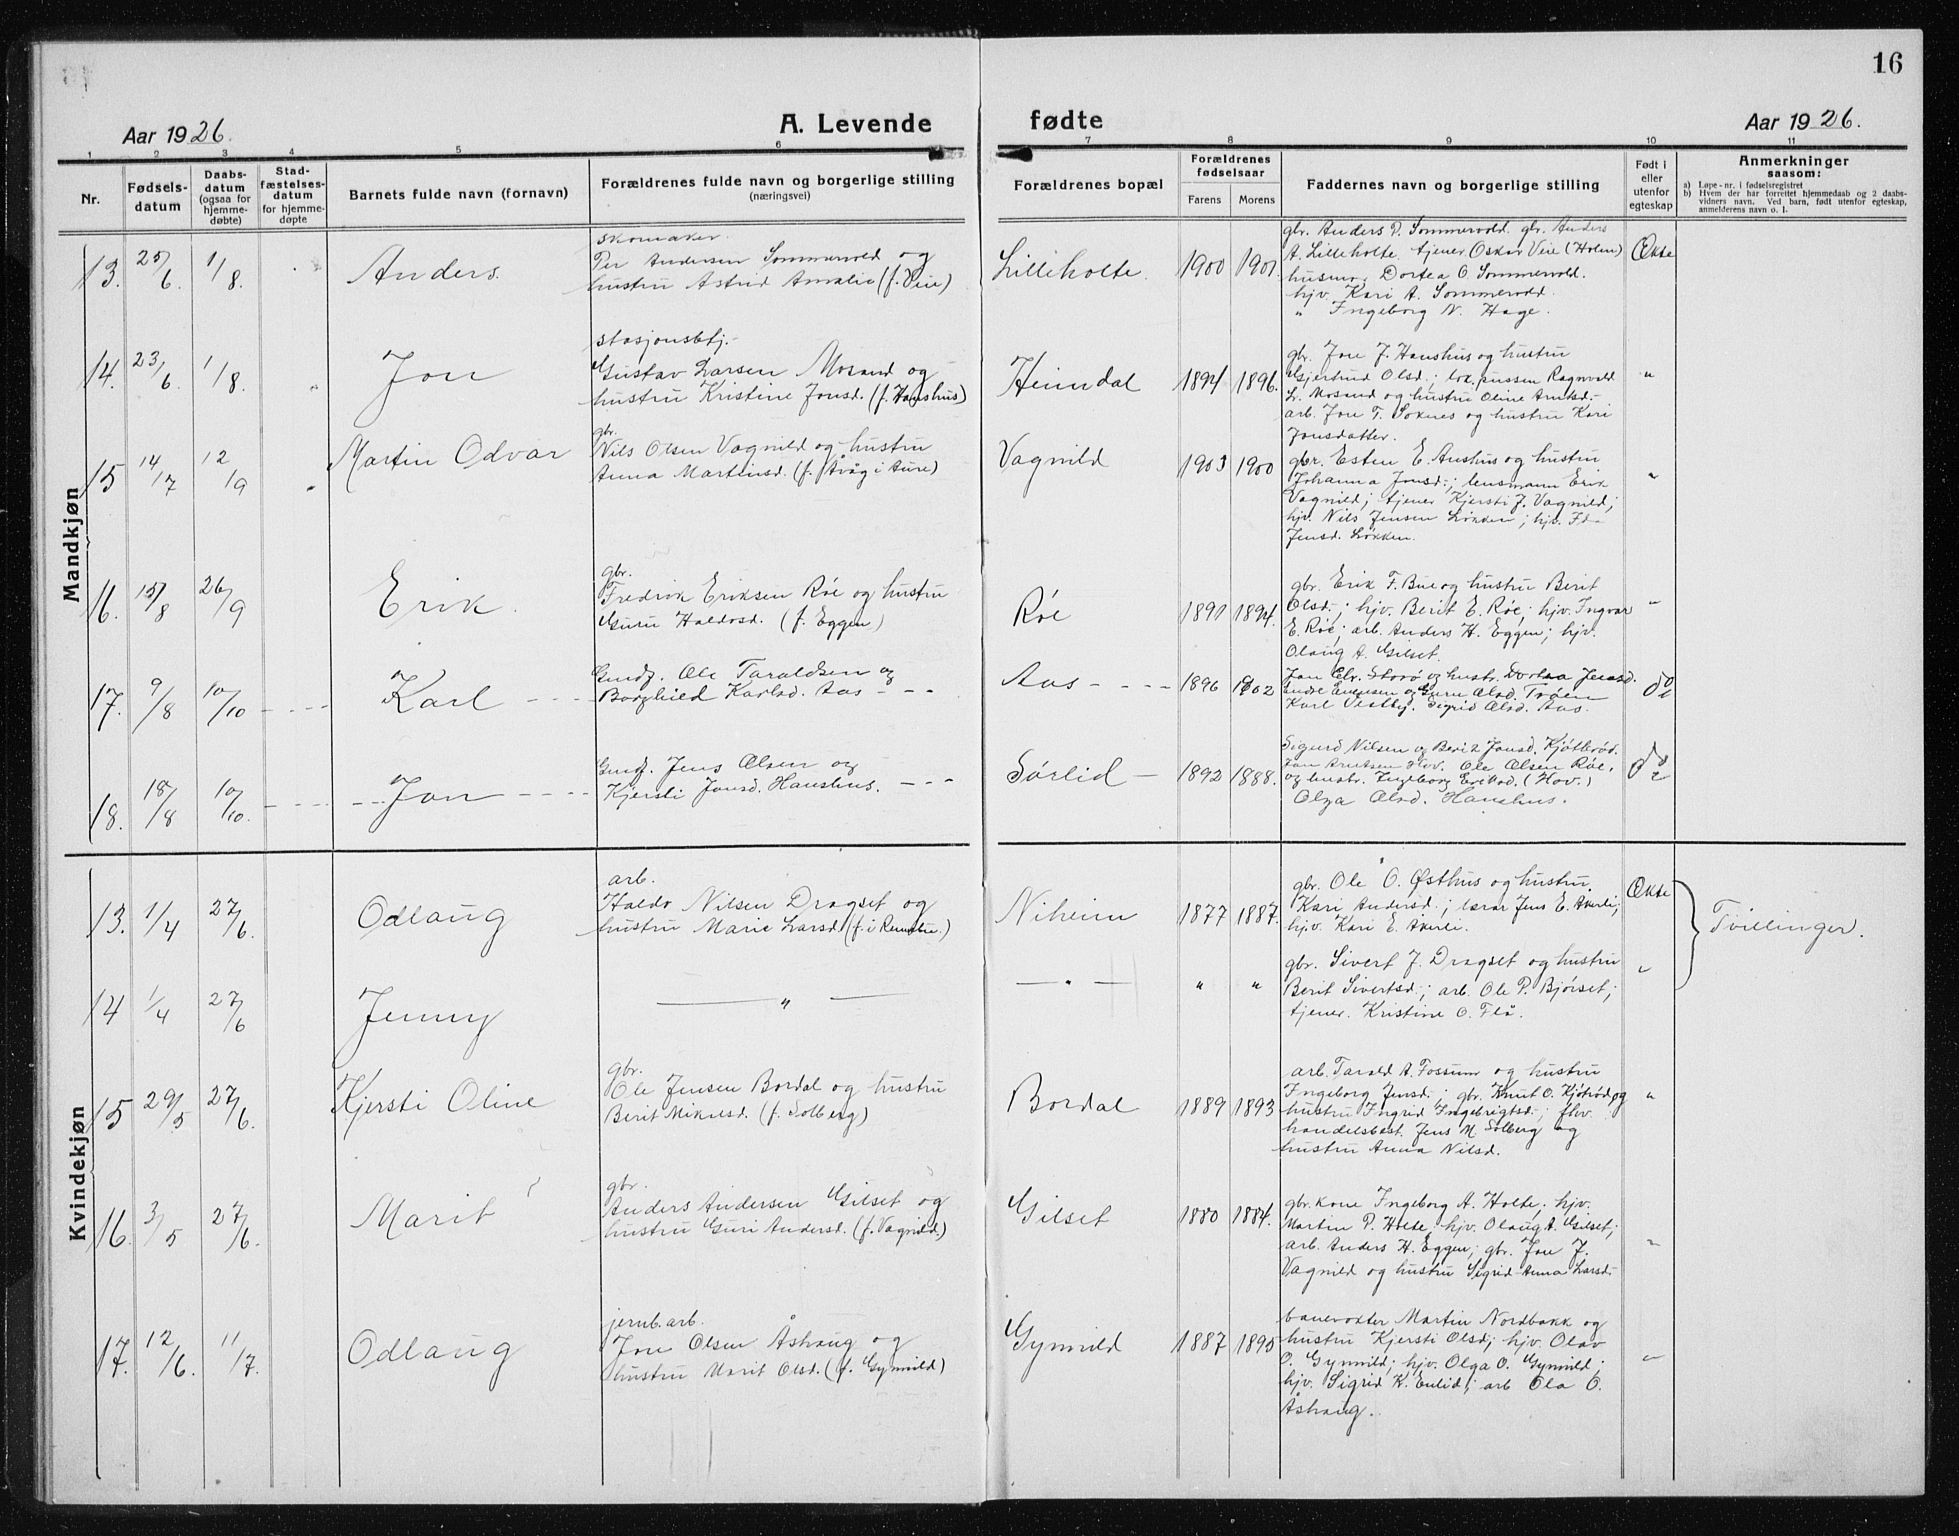 16
Aar 1926.
A. Levende
fødte
Aar 1926.
1 2 3 4 5 6 7 8 9 10 11
Nr.
Fødsels-
datum
Daabs-
datum
(ogsaa for
hjemme-
døbte)
Stad-
fæstelses-
datum
for hjemme-
døpte
Barnets fulde navn (fornavn)
Forældrenes fulde navn og borgerlige stilling
(næringsvei)
Forældrenes bopæl
Forældrenes
fødselsaar
Farens Morens
Faddernes navn og borgerlige stilling
Født i
eller
utenfor
egteskap
Anmerkninger
saasom:
a) Løpe-nr. i fødselsregistret
b) Hvem der har forrettet hjemmedaab og 2 daabs-
vidners navn. Ved barn, født utenfor egteskap,
anmelderens navn o. l.
Mandkjøn
13. 25/6 1/8. Anders.
skomaker.
Per Andersen Sommervold og
hustru Astrid Amalie (f. Veie)
Lilleholte. 1900 1901.
gbr. Anders P. Sommervold. gbr. Anders
A. Lilleholte, tjener Oskar Veie (Holen)
husmor Dortea O. Sommervold.
hjv. Kari A. Sommervold.
" Ingeborg N. Hage.
Ekte
14. 23/6. 1/8. Jon
stasjonsbtj.
Gustav Larsen Mosand og
hustru Kristine Jonsd. (f. Hanshus)
Heimdal 1894 1896.
gbr. Jon J. Hanshus og hustru
Gjertrud Olsd.; lok.pussen Ragnvald
L. Mosand og hustru Oline Arntsd.-
arb. Jon T. Soknes og hustru Kari
Jonsdatter.
"
15 14/7 12/9 Martin Odvar
gbr.
Nils Olsen Vagnild og hustru
Anna Martinsd. (f. Åvåg i Aure)
Vagnild 1903 1900
gbr. Esten E. Aushus og hustru
Johanna Jonsd.; lensmann Erik
Vagnild; tjener Kjersti J. Vagnild;
hjv. Nils Jensen Løkken; hjv. Ida
Jensd. Løkken.
"
16. 15/8 26/9 Erik.
gbr.
Fredrik Eriksen Røe og hustru
Guru Haldosd. (f. Eggen)
Røe 1891 1894.
gbr. Erik F. Bue og hustru Berit
Olsd.; hjv. Berit E. Røe; hjv. Ingvar
E. Røe; arb. Anders H. Eggen; hjv.
Olaug A. Gilset.
"
17. 9/8 10/10 Karl
Gmdj. Ole Taraldsen og
Borghild Karlsd. Aas
Aas 1896 1902
Jon Elv. Storø og hustr. Dortea Jensd.
Endre Evensen og Guru Olsd. Trøen
Karl Vestby. Sigrid Olsd. Aas.
do
18. 18/8 10/10. Jon
Gmdj. Jens Olsen og
Kjersti Jonsd. Hanshus.
Sørlid 1892 1888.
Sigurd Nilsen og Berit Jonsd. Kjøtterød.
Jon Arntsen Hov. Ole Olsen Røe,
og hustr. Ingeborg Eriksd. (Hov.)
Olga Olsd. Hanshus.
do
Kvindekjøn
13. 1/4 27/6. Odlaug
arb.
Haldo Nilsen Dragset og
hustru Marie Larsd. (f. i Rennebu)
Niheim 1877 1887.
gbr. Ole O. Østhus og hustru.
Kari Andersd.; lærar Jens E. Akerli;
hjv. Kari E. Akerli.
Ekte
Tvillinger.
14 1/4 27/6 Jenny
— " —
— " — " "
gbr. Sivert J. Dragset og hustru
Berit Sivertsd.; arb. Ole P. Bjørset;
tjener. Kristine O. Flå.
"
15 29/5 27/6. Kjersti Oline
gbr.
Ole Jensen Bordal og hustru
Berit Mikalsd. (f. Solberg)
Bordal 1889 1893
arb. Tarald A. Fossum og hustru
Ingeborg Jensd.; gbr. Knut O. Kjøtrød og
hustru Ingrid Ingebrigtsd.; flv.
handelsbest. Jens M. Solberg og
hustru Anna Nilsd.
"
16. 3/5 27/6. Marit
gbr.
Anders Andersen Gilset og
hustru Guri Andersd. (f. Vagnild)
Gilset 1880 1884.
gbr.kone Ingeborg A. Holte; hjv.
Martin P. Holte; hjv. Olaug A. Gilset;
arb. Anders H. Eggen; gbr. Jon J.
Vagnild og hustru Sigrid Anna Larsd.
"
17. 12/6. 11/7. Odlaug
jernb.arb.
Jon Olsen Åshaug og
hustru Marit Olsd. (f. Gynnild)
Gynnild 1887 1895
banevokter Martin Nordbakk og
hustru Kjersti Olsd; hjv. Olav
O. Gynnild; hjv. Olga O. Gynnild;
hjv. Sigrid K. Enlid; arb Ola O.
Åshaug.
"